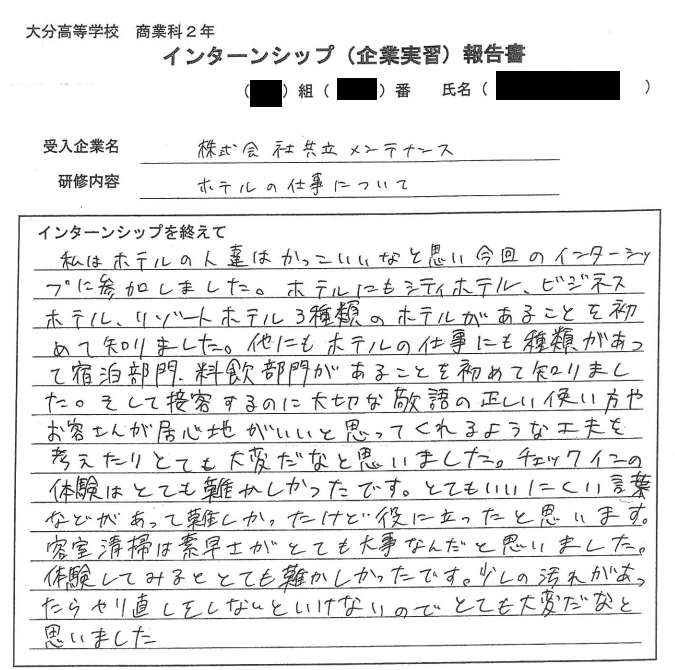 大分高等学校　商業科２年
インターンシップ（企業実習）報告書
（　）組（　）番　氏名（　）
受入企業名　株式会社共立メンテナンス
研修内容　ホテルの仕事について
インターンシップを終えて
私はホテルの人達はかっこいいなと思い今回のインターンシッ
プに参加しました。ホテルにもシティホテル、ビジネス
ホテル、リゾートホテル3種類のホテルがあることを初
めて知りました。他にもホテルの仕事にも種類があっ
て宿泊部門、料飲部門があることを初めて知りまし
た。そして接客するのに大切な敬語の正しい使い方や
お客さんが居心地がいいと思ってくれるような工夫を
考えたりとても大変だなと思いました。チェックインの
体験はとても難かしかったです。とてもいいにくい言葉
などがあって難しかったけど役に立ったと思います。
客室清掃は素早さがとても大事なんだと思いました。
体験してみるととても難かしかったです。少しの汚れがあっ
たらやり直しをしないといけないのでとても大変だなと
思いました